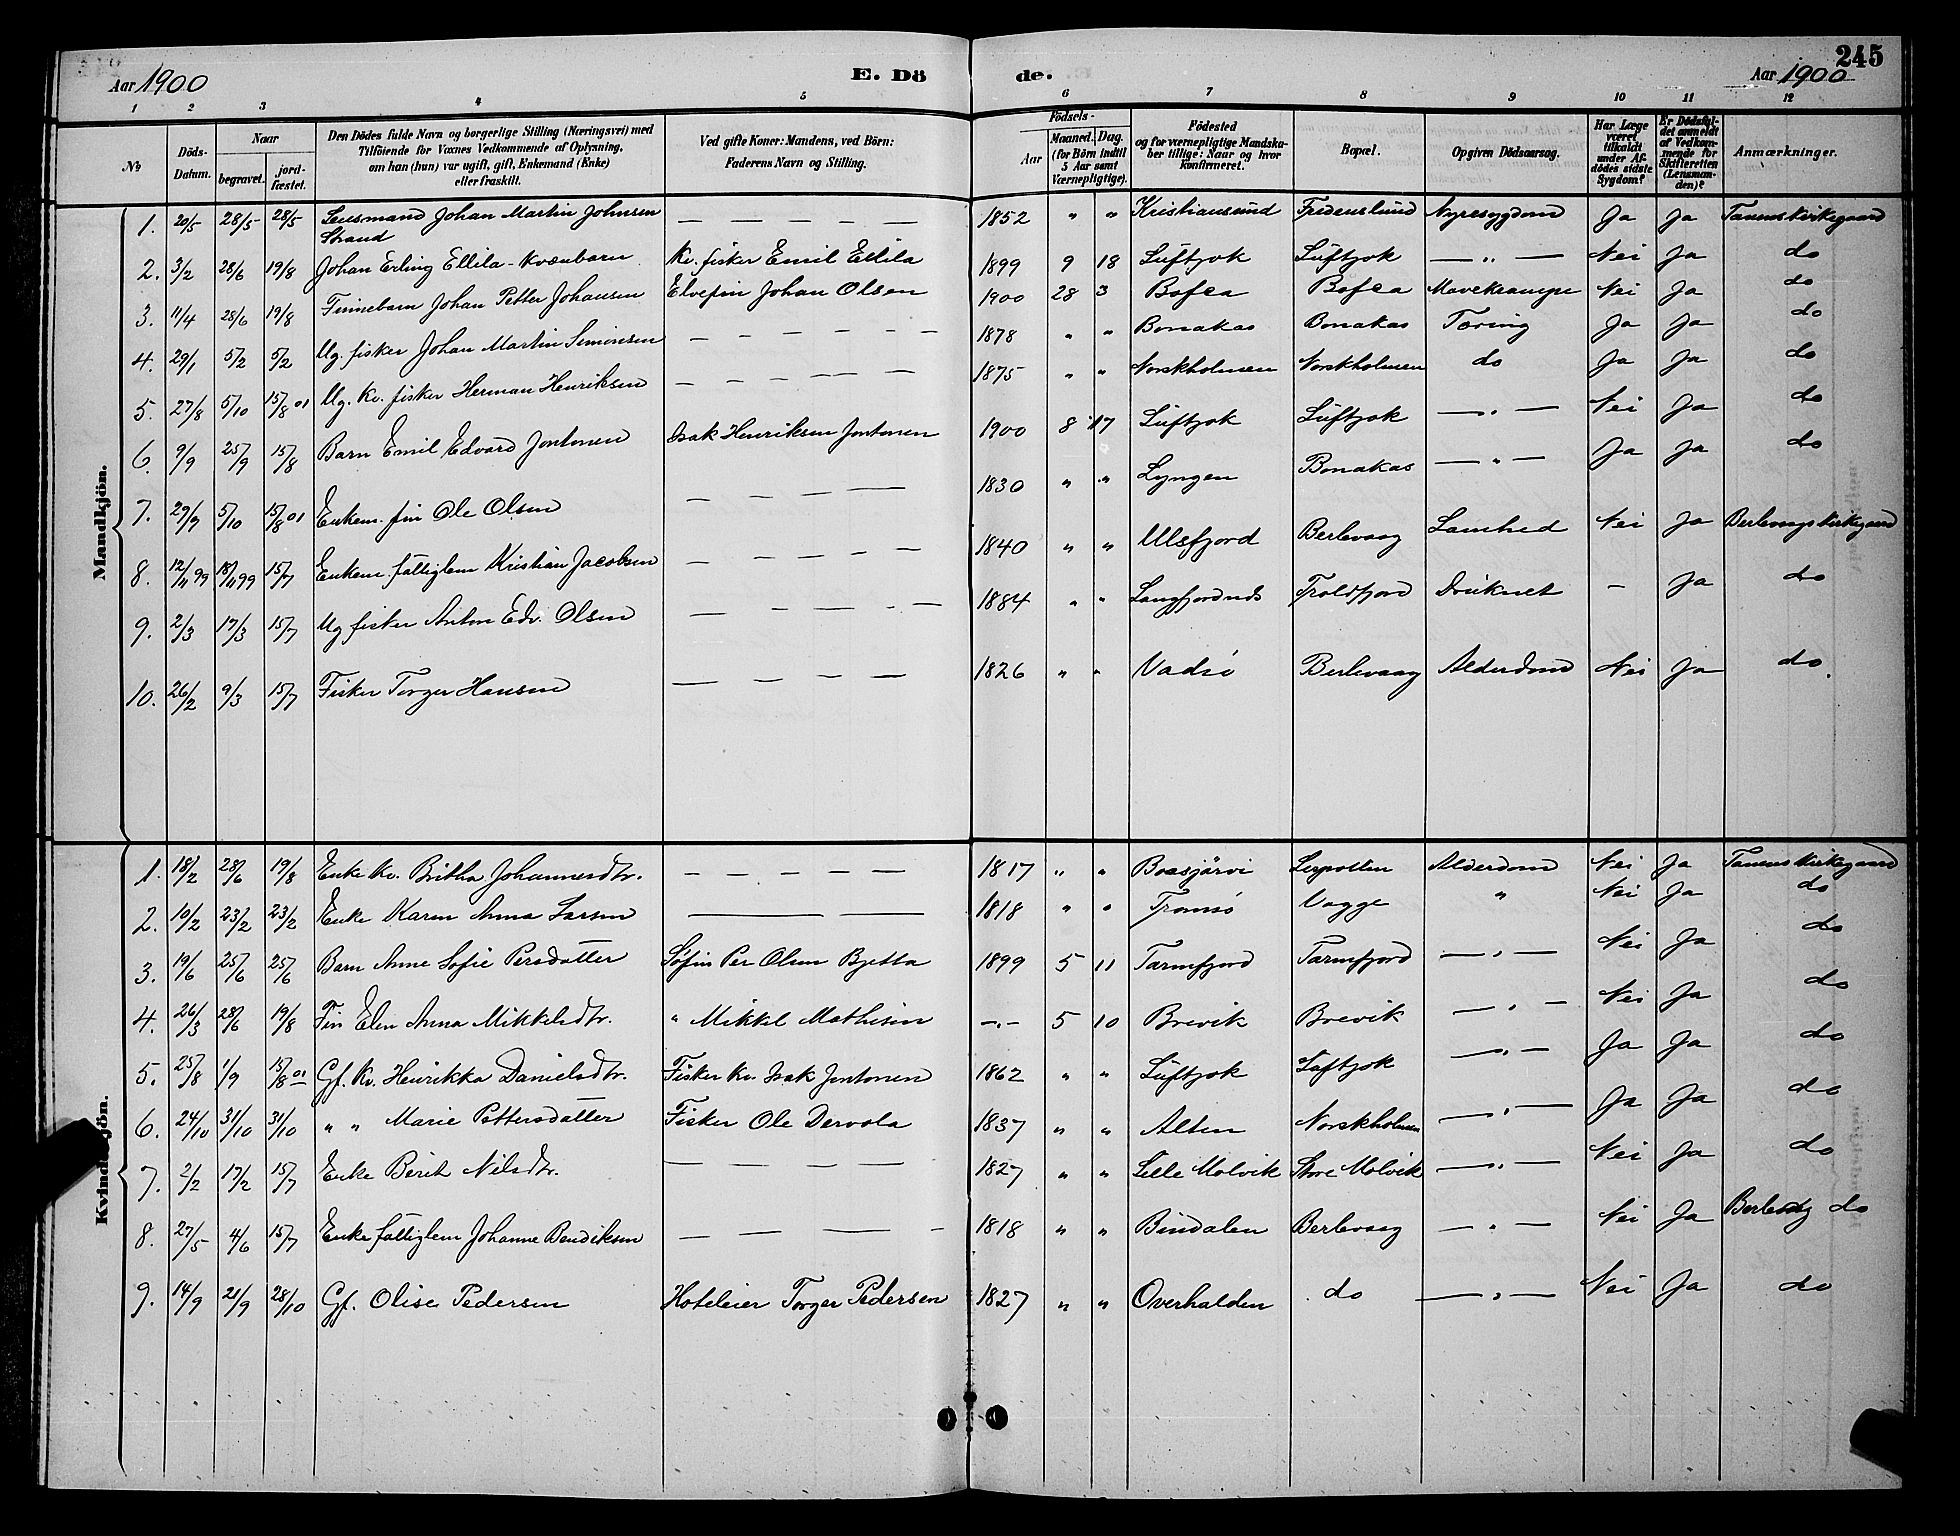 Aar 1900 E. Dö de. Aar 1900 245
1 2 3 4 5 6 7 8 9 10 11 12
№ Döds-Datum. Naar begravet. jordfæstet. Den Dödes fulde Navn og borgerlige Stilling (Næringsvei) med Tilföiende for Voxnes Vedkommende af Oplysning, om han (hun) var ugift, gift, Enkemand (Enke) eller fraskilt. Ved gifte Koner: Mandens, ved Börn: Faderens Navn og Stilling. Födsels- Aar Maaned. Dag. (for Börn indtil 5 Aar samt Værnepligtige). Födested og for værnepligtige Mandskaber tillige: Naar og hvor konfirmeret. Bopæl. Opgiven Dödsaarsag. Har Læge været tilkaldt under Afdödes sidste Sygdom? Er Dödsfaldet anmeldt af Vedkommende for Skifteretten (Lensmanden)? Anmærkninger.
Mandkjön.
1. 20/5 28/5 28/5 Lensmand Johan Martin Johnsen Strand — — — — — 1852 " " Kristiansund Fredenslund Nyresygdom Ja Ja Tanens kirkegaard
2. 3/2 28/6 19/8 Johan Erling Ellila - kvænbarn Kv. fisker Emil Ellila 1899 9 18 Luftjok Luftjok — " — Nei Ja do
3. 11/4 28/6 19/8 Finnebarn Johan Petter Johansen Elvefin Johan Olsen 1900 28 3 Bofea Bofea Mavekrampe Nei Ja do
4. 29/1 5/2 5/2 Ug. fisker Johan Martin Simonsen — — — — — 1878 " " Bonakas Bonakas Tæring Ja Ja do
5. 27/8 5/10 15/8 01 Ug. kv. fisker Herman Henriksen — — — — — 1875 " " Norskholmen Norskholmen do Ja Ja do
6. 9/9 25/9 15/8 Barn Emil Edvard Jontonen Isak Henriksen Jontonen 1900 8 17 Luftjok Luftjok — " — Nei Ja do
7. 29/9 5/10 15/8 01 Enkem. fin Ole Olsen — — — — 1830 " " Lyngen Bonakas — " — Ja Ja do
8. 12/11 99 18/11 99 15/7 Enkem. fattiglem Kristian Jacobsen — — — — — 1840 " " Ulsfjord Berlevaag Lamhed Nei Ja Berlevaags kirkegaard
9. 2/3 17/3 15/7 Ug fisker Anton Edv. Olsen — — — — — 1884 " " Langfjordnes Troldfjord Druknet - Ja do
10. 26/2 9/3 15/7 Fisker Torger Hansen — — — — — 1826 " " Vadsö Berlevaag Alderdom Nei Ja do
Kvindekjön.
1. 18/2 28/6 19/8 Enke kv. Britha Johannesdtr. — — — — — 1817 " " Boasjärvi Leypollen Alderdom Nei Ja Tanens kirkegaard
2. 10/2 23/2 23/2 Enke Karen Anna Larsen — — 1818 " " Tromsö Vagge " Nei Ja do
3. 19/6 25/6 25/6 Barn Anne Sofie Persdatter Söfin Per Olsen Bjetta 1899 5 11 Tarmfjord Tarmfjord — " — Nei Ja do
4. 26/3 28/6 19/8 Fin Elen Anna Mikkelsdtr. " Mikkel Mathisen — " — 5 10 Brevik Brevik — " — Nei Ja do
5. 25/8 1/9 15/8 01 Gf. Kv. Henrikka Danielsdtr. Fisker kv. Isak Jontonen 1862 " " Luftjok Luftjok — " — Ja Ja do
6. 24/10 31/10 31/10 " " Marie Pettersdatter Fisker Ole Dervola 1837 " " Alten Norskholmen — " — Ja Ja do
7. 2/2 17/2 15/7 Enke Berit Nilsdtr. — — — — — 1827 " " Lille Molvik Store Molvik — " — Nei Ja do
8. 27/5 4/6 15/7 Enke fattiglem Johanne Bendiksen — — — — 1818 " " Bindalen Berlevaag — " — Nei Ja Berlevag do
9. 14/9 21/9 28/10 Gf. Olise Pedersen Hoteleier Torger Pedersen 1827 " " Overhalden do — " — Nei Ja do